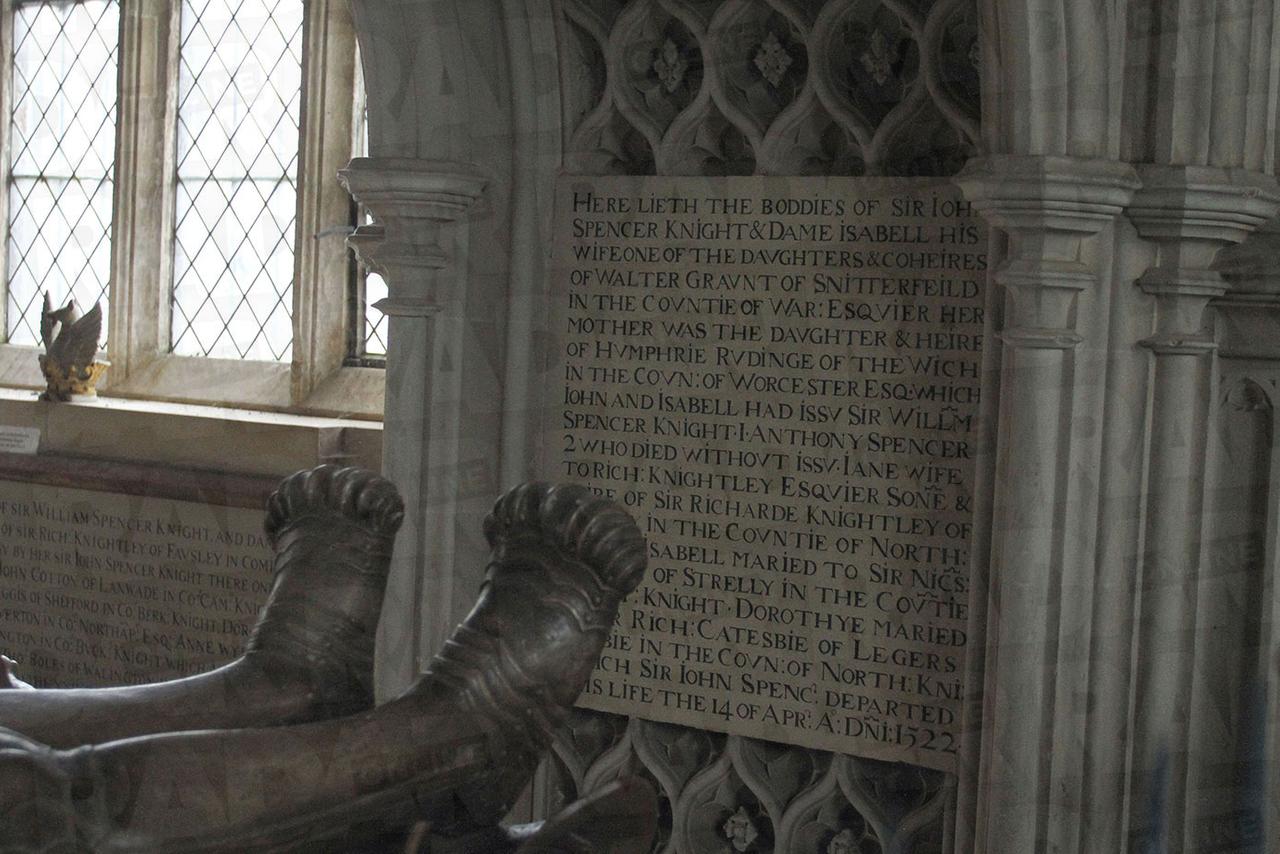 HERE LIETH THE BODDIES OF SIR IOHN
SPENCER KNIGHT & DAME ISABELL HIS
WIFE ONE OF THE DAVGHTERS & COHEIRES
OF WALTER GRAVNT OF SNITTERFEILD
IN THE COVNTIE OF WAR: ESQVIER HER
MOTHER WAS THE DAVGHTER & HEIRE
OF HVMPHRIE RVDINGE OF THE WICH
IN THE COVN: OF WORCESTER ESQ: WHICH
IOHN AND ISABELL HAD ISSV SIR WILLM̃
SPENCER KNIGHT·I·ANTHONY SPENCER
2 WHO DIED WITHOVT ISSV·IANE WIFE
TO RICH: KNIGHTLEY ESQVIER SOÑE &
OF SIR RICHARDE KNIGHTLEY OF
IN THE COVNTIE OF NORTH:
ISABELL MARIED TO SIR NIC̃S:
OF STRELLY IN THE COṼTIE
: KNIGHT·DOROTHYE MARIED
RICH: CATESBIE OF LEGERS
BIE IN THE COVN: OF NORTH: KNI:
ICH SIR IOHN SPENC: DEPARTED
IS LIFE THE 14 OF APR: A: DÑI: 1522
OF SIR WILLIAM SPENCER KNIGHT, AND DA
OF SIR RICH: KNIGHTLEY OF FAVSLEY IN COM
Y BY HER SIR IOHN SPENCER KNIGHT THERE ON
IOHN COTTON OF LANWADE IN CO: CAM: KNIG
GGIS OF SHEFFORD IN CO: BERK: KNIGHT, DOR
VERTON IN CO: NORTHAP: ESQ: ANNE WY
NGTON IN CO: BVCK: KNIGHT WHICH
BOLES OF WALINGTON